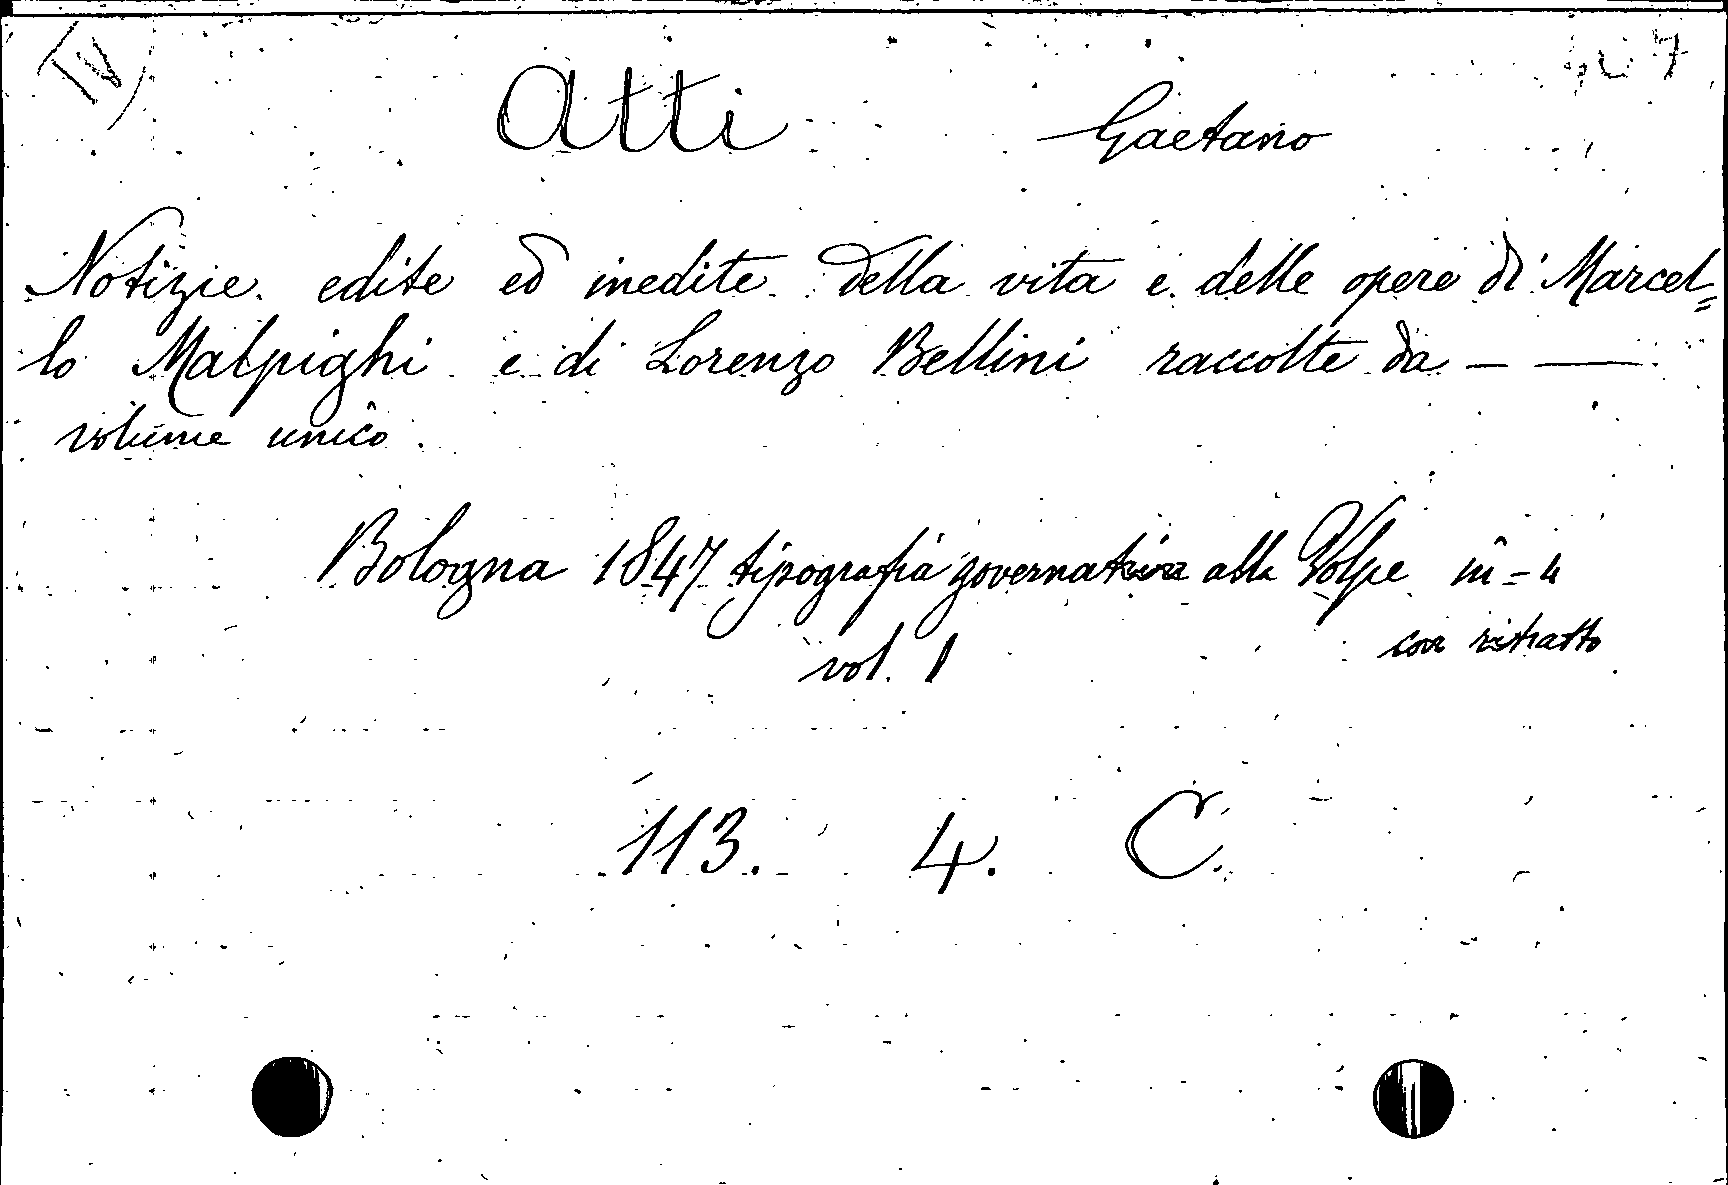 IV)
Atti Gaetano
Notizie edite ed inedite della vita e delle opere di Marcel=
lo Malpighi e di Lorenzo Bellini raccolte da — —
volume unico.
Bologna 1847 tipografia governativa alla Volpe in=4
vol. 1 con ritratto
113. 4. C.